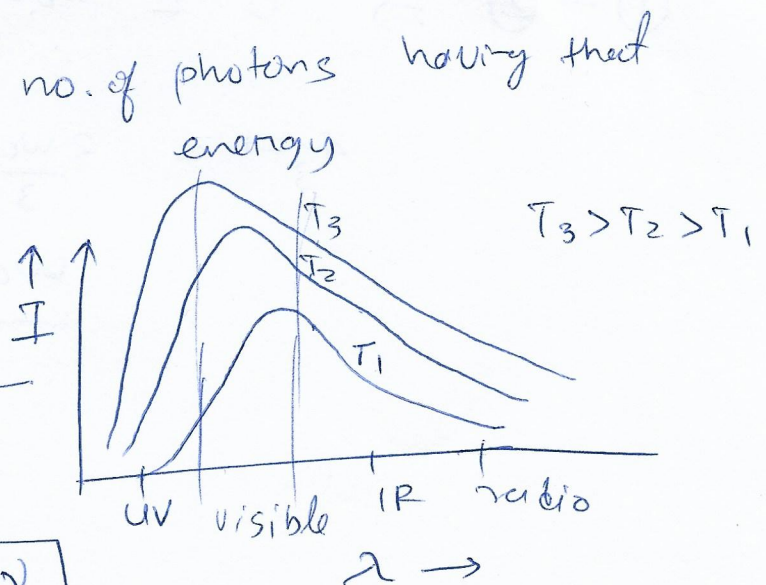 no. of photons having that
energy
T3 > T2 > T1
T3
T2
I
T1
UV visible IR radio
λ →